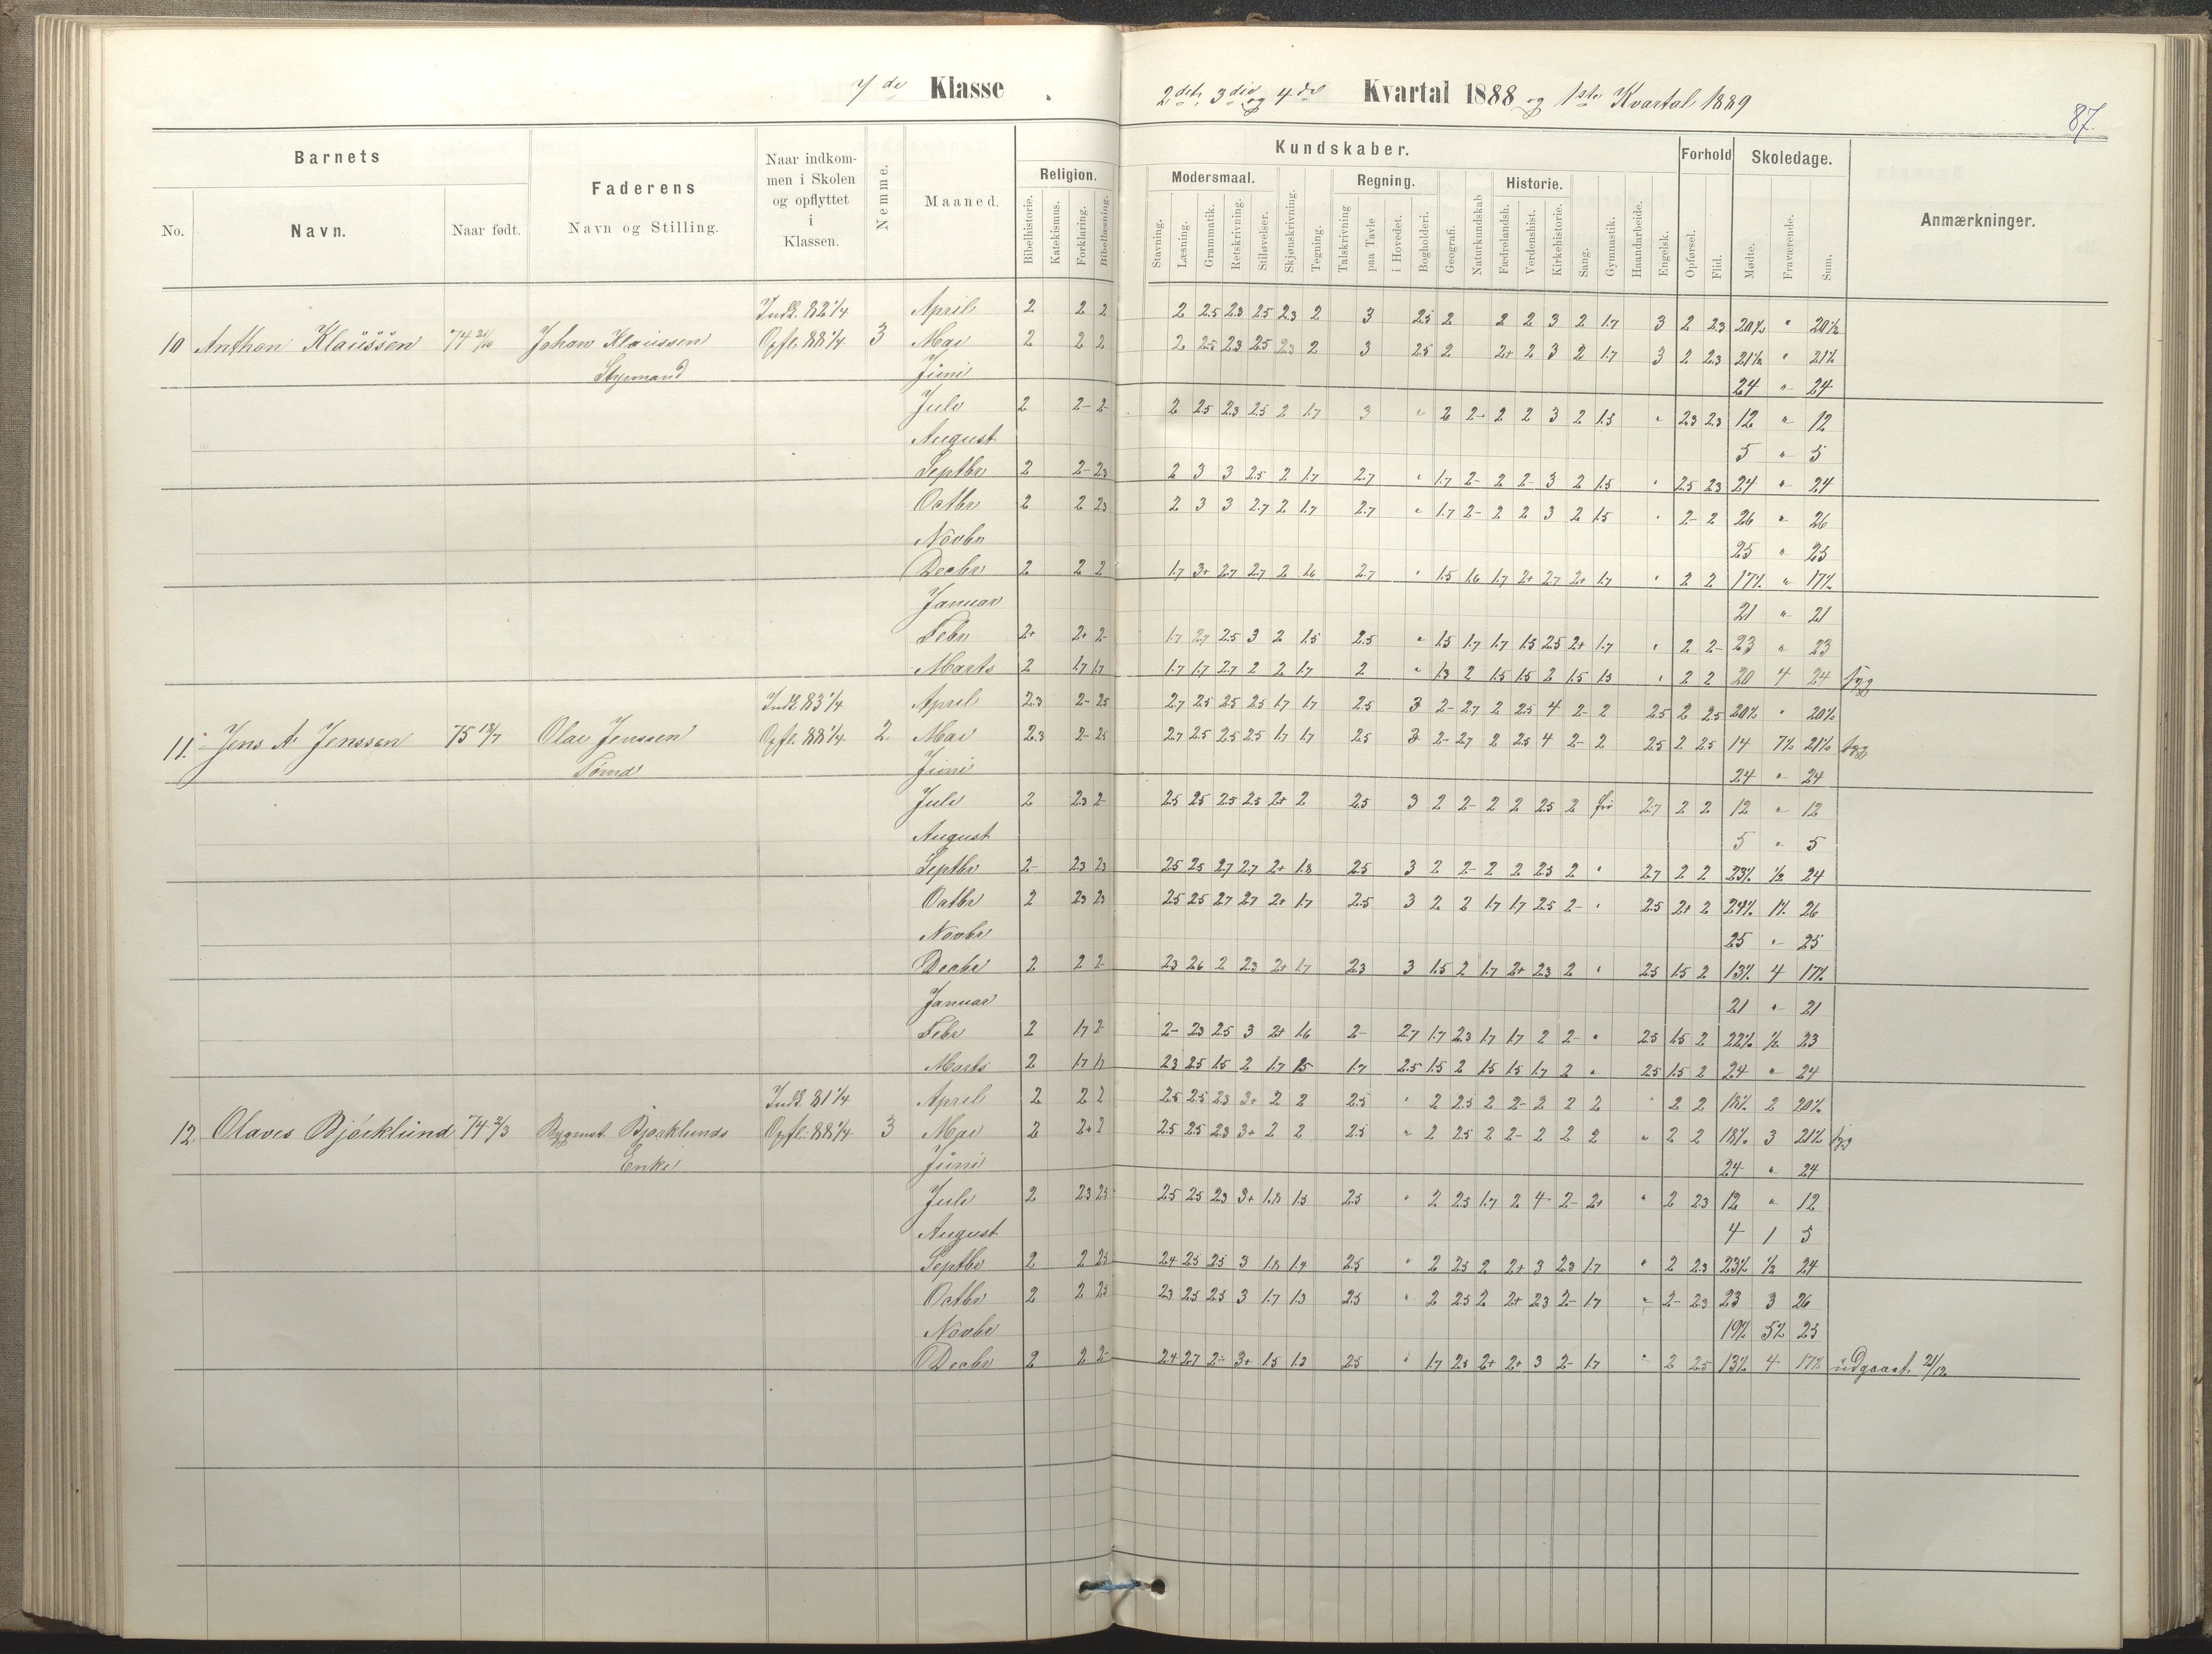 7de Klasse.
2det, 3die og 4de Kvartal 1888 og 1ste Kvartal 1889
87.
Barnets
No. Navn. Naar født.
Faderens
Navn og Stilling.
Naar indkom-
men i Skolen
og opflyttet
i
Klassen.
Nemme.
Maaned.
Kundskaber.
Religion.
Bibelhistorie. Katekismus. Forklaring. Bibellæsning.
Modersmaal.
Stavning. Læsning. Grammatik. Retskrivning. Stiløvelser. Skjønskrivning. Tegning.
Regning.
Talskrivning paa Tavle i Hovedet. Bogholderi. Geografi. Naturkundskab
Historie.
Fædrelandsh. Verdenshist. Kirkehistorie. Sang. Gymnastik. Haandarbeide. Engelsk.
Forhold
Opførsel. Flid.
Skoledage.
Møde. Fraværende. Sum.
Anmærkninger.
Indk. 82 1/4 April 2 2 2 2 2.5 2.3 2.5 2.3 2 3 2.5 2 2 2 3 2 1.7 3 2 2.3 20½ " 20½
10 Anthon Klaüssen Johan Klaussen Opfl. 88 1/4 3 Mai 2 2 2 2 2.5 2.3 2.5 2.3 2 3 2.5 2 2+ 2 3 2 1.7 3 2 2.3 21½ " 21½
Styrmand Juni 24 " 24
Juli 2 2- 2- 2 2.5 2.3 2.5 2 1.7 3 " 2 2- 2 2 3 2 1.5 " 2.3 2.3 12 " 12
August 5 " 5
Septbr 2 2- 2.3 2 3 3 2.5 2 1.7 2.7 " 1.7 2- 2 2- 3 2 1.5 " 2.5 2.3 24 " 24
Octbr 2 2 2.3 2 3 3 2.7 2 1.7 2.7 " 1.7 2- 2 2 3 2 1.5 " 2- 2 26 " 26
Novbr 25 " 25
Decbr 2 2 2 1.7 3+ 2.7 2.7 2 1.6 2.7 " 1.5 1.6 1.7 2+ 2.7 2+ 1.7 " 2 2 17½ " 17½
Januar 21 " 21
Febr 2+ 2+ 2- 1.7 2.7 2.5 3 2 1.5 2.5 " 1.5 1.7 1.7 1.5 2.5 2+ 1.7 " 2 2- 23 " 23
Marts 2 1.7 1.7 1.7 1.7 2.7 2 2 1.7 2 " 1.3 2 1.5 1.5 2 1.5 1.5 " 2 2 20 4 24 syg
Indk. 83 1/4 April 2.3 2- 2.5 2.7 2.5 2.5 2.5 1.7 1.7 2.5 3 2- 2.7 2 2.5 4 2- 2 2.5 2 2.5 20½ " 20½
11. Jens A Jenssen 75 13/7 Olai Jenssen Opfl. 88 1/4 2. Mai 2.3 2- 2.5 2.7 2.5 2.5 2.5 1.7 1.7 2.5 3 2- 2.7 2 2.5 4 2- 2 2.5 2 2.5 14 7½ 21½ syg
Tømd Juni 24 " 24
Juli 2 2.3 2- 2.5 2.5 2.5 2.5 2+ 2 2.5 3 2 2- 2 2 2.5 2 fri 2.7 2 2 12 " 12
August 5 " 5
Septbr 2- 2.3 2.3 2.5 2.5 2.7 2.7 2+ 1.8 2.5 3 2 2- 2 2 2.3 2 " 2.7 2 2 23½ ½ 24
Octbr 2 2.3 2.3 2.5 2.5 2.7 2.7 2+ 1.7 2.5 3 2 2 1.7 1.7 2.5 2- " 2.5 2+ 2 24½ 1½ 26
Novbr 25 " 25
Decbr 2 2 2- 2.3 2.6 2 2.3 2+ 1.7 2.3 3 1.5 2 1.7 2+ 2.3 2 " 2.5 1.5 2 13½ 4 17½
Januar 21 " 21
Febr 2 1.7 2- 2- 2.3 2.5 3 2+ 1.6 2- 2.7 1.7 2.3 1.7 1.7 2 2- " 2.5 1.5 2 22½ ½ 23
Marts 2 1.7 1.7 2.3 2.5 1.5 2 1.7 1.5 1.7 2.5 1.5 2 1.5 1.5 1.7 2 " 2.5 1.5 2 24 " 24
Indk. 81 1/4 April 2 2 2 2.5 2.5 2.3 3+ 2 2 2.5 " 2 2.5 2 2- 2 2 2 " 2 2 18½ 2 20½
12. Olaves Bjørklünd 74 2/3 Bygmst. Bjørklunds Opfl. 88 1/4 3 Mai 2 2+ 2 2.5 2.5 2.3 3+ 2 2 2.5 " 2 2.5 2 2- 2 2 2 " 2 2 18½ 3 21½ syg
Enke Juni 24 " 24
Juli 2 2.3 2.5 2.5 2.5 2.3 3+ 1.8 1.5 2.5 " 2 2.5 1.7 2 4 2- 2+ " 2 2.3 12 " 12
August 4 1 5
Septbr 2 2 2.5 2.4 2.5 2.5 3 1.8 1.4 2.5 " 2 2.5 2 2+ 3 2.3 1.7 " 2 2.3 23½ ½ 24
Octbr 2 2 2.5 2.3 2.5 2.5 3 1.7 1.3 2.5 " 2 2.5 2 2+ 2.3 2- 1.7 " 2- 2.3 23 3 26
Novbr 19½ 5½ 25
Decbr 2 2 2- 2.4 2.7 2- 3+ 1.5 1.3 2.5 " 1.7 2.5 2+ 2+ 3 2- 1.7 " 2 2.5 13½ 4 17½ üdgaaet 21/12